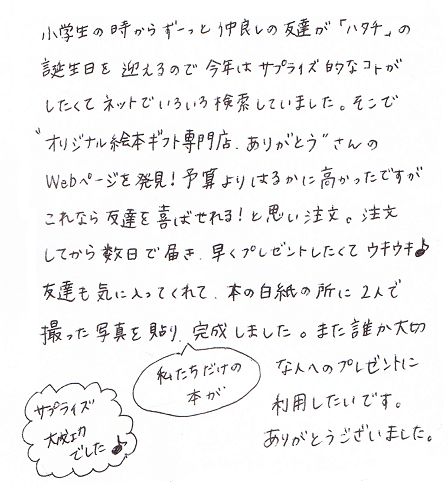 小学生の時からずーっと仲良しの友達が「ハタチ」の
誕生日を迎えるので今年はサプライズ的なコトが
したくてネットでいろいろ検索していました。そこで
"オリジナル絵本ギフト専門店、ありがとう"さんの
Webページを発見！予算よりはるかに高かったですが
これなら友達を喜ばせれる！と思い注文。注文
してから数日で届き、早くプレゼントしたくてウキウキ♪
友達も気に入ってくれて、本の白紙の所に2人で
撮った写真を貼り、完成しました。また誰か大切
私たちだけの
本が
な人へのプレゼントに
利用したいです。
ありがとうございました。
サプライズ
大成功
でした♪